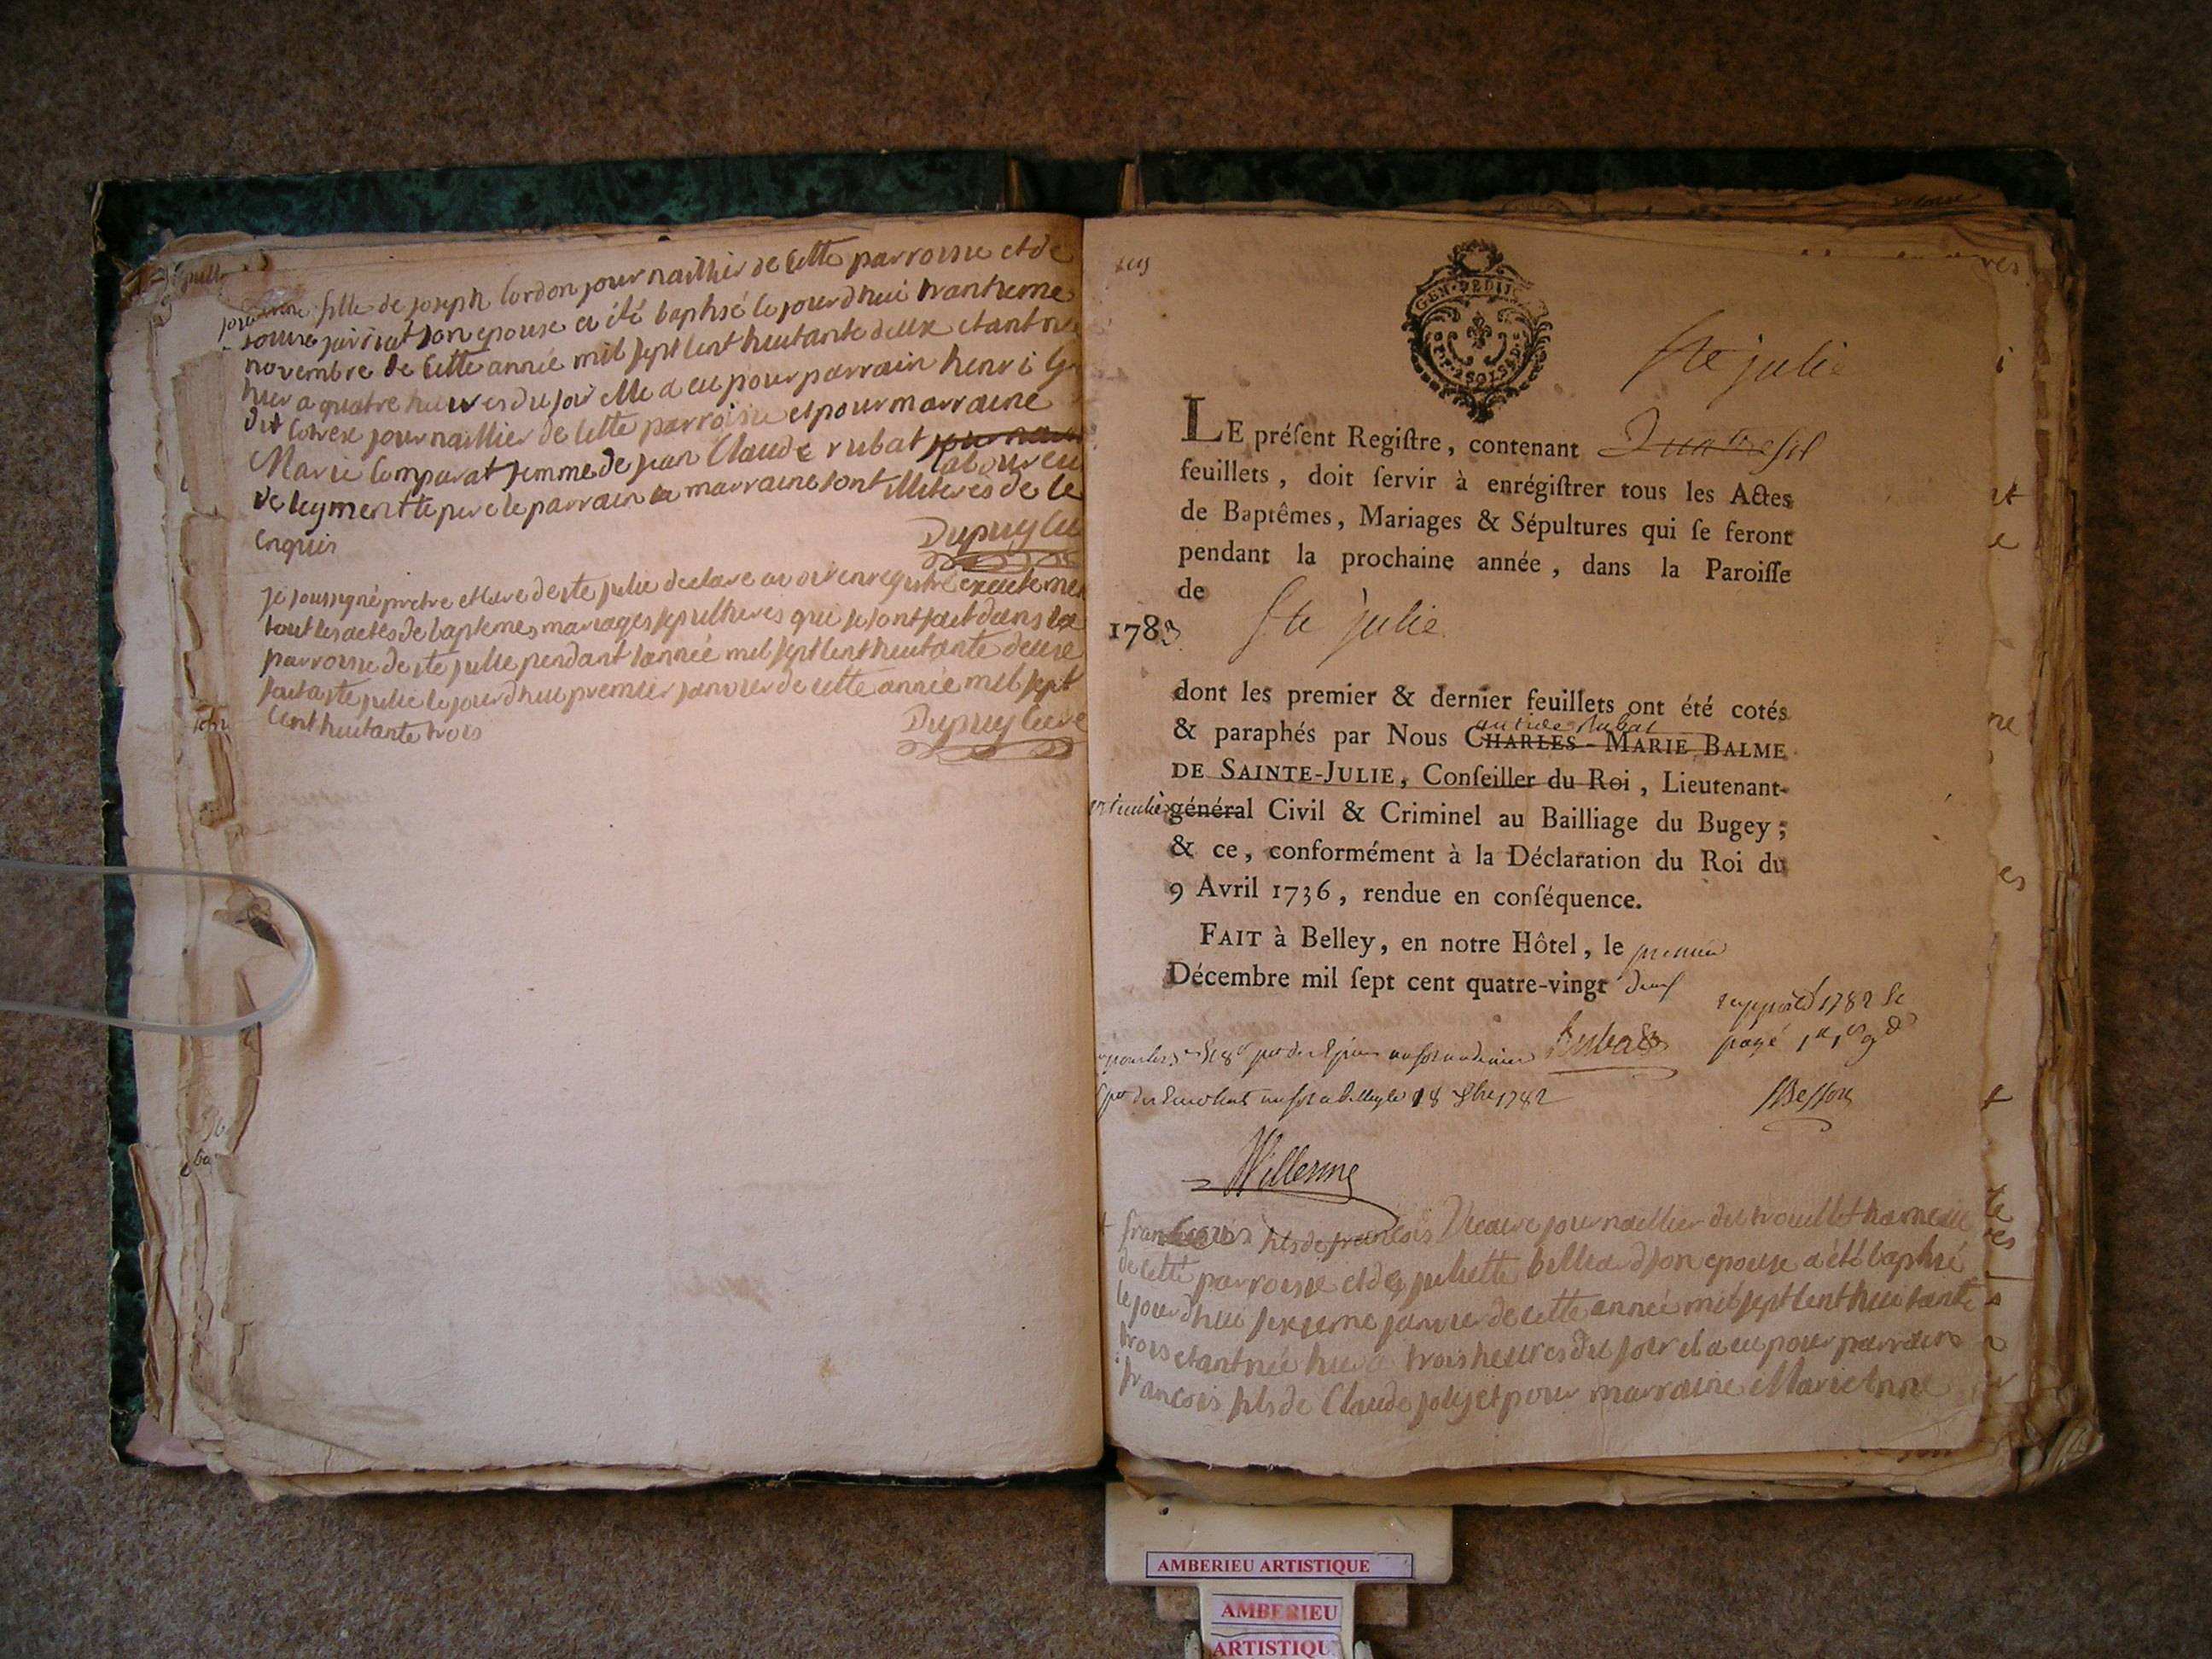 fille de joseph Cordon journaillier de cette parroisse et de
son epouse a été baptisé le jourd'hui trantieme
novembre de cette année mil sept cent huitante deux etant née
hier a quatre heures du soir elle a eu pour parrain henri
dit journaillier de cette parroisse et pour marraine
Marie Comparat femme de jean Claude rubat
laboureu
de leyment le pere le parrain la marraine sont illiteres de ce
enquis
Dupuy Cu
je soussigné pretre et Curé de ste julie declare avoir enregistré exacteme
tout les actes de baptemes mariages sepultures qui se sont fait dans la
parroisse de ste julie pendant l'année mil sept cent huitante deux
fait a ste julie le jourd'hui premier janvier de cette année mil sept
Cent huitante trois
Dupuy Curé
GEN. DE DIJON
Ste julie
LE préſent Regiſtre, contenant
feuillets, doit ſervir à enrégiſtrer tous les Actes
de Baptêmes, Mariages & Sépultures qui ſe feront
pendant la prochaine année, dans la Paroiſſe
de
1783 Ste julie
dont les premier & dernier feuillets ont été cotés
& paraphés par Nous CHARLES-MARIE BALME
DE SAINTE-JULIE, Conſeiller du Roi, Lieutenant-
général Civil & Criminel au Bailliage du Bugey;
& ce, conformément à la Déclaration du Roi du
9 Avril 1736, rendue en conſéquence.
FAIT à Belley, en notre Hôtel, le premier
Décembre mil ſept cent quatre-vingt deux
Rubat
1782
payé
Besson
18 1782
Willerme
fils de francois journaillier du trouillet hameau
de cette parroisse et de juliette billiard son epouse a été baptisé
le jourd'hui sixieme janvier de cette année mil sept cent huitante
trois etant née hier a trois heures du soir il a eu pour parrain
francois fils de Claude joly et pour marraine Marie Anne
AMBERIEU ARTISTIQUE
AMBERIEU
ARTISTIQU